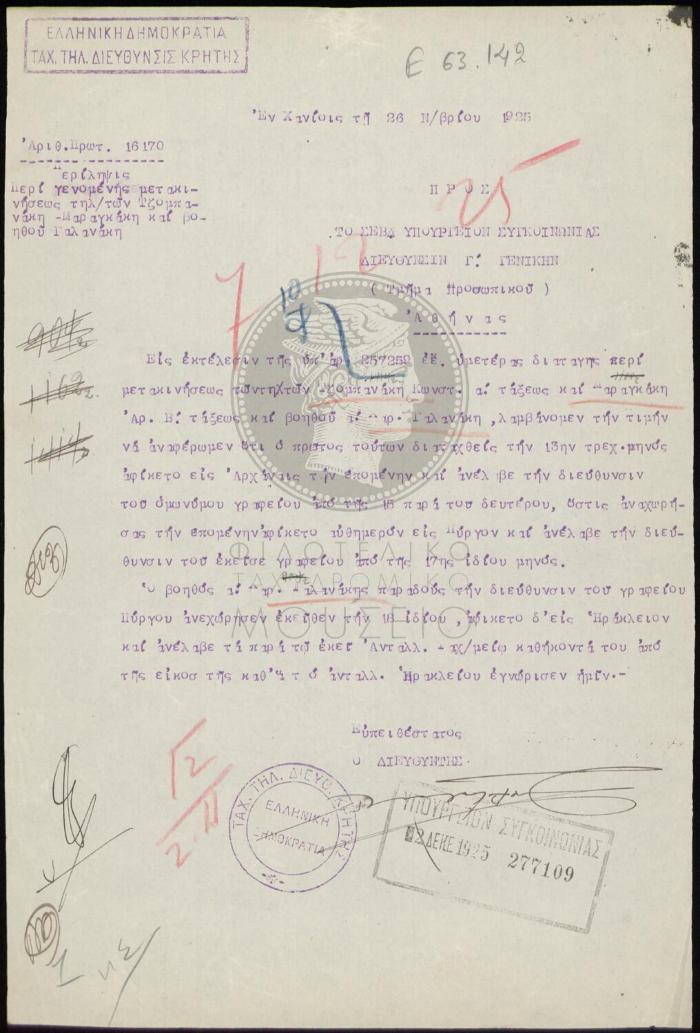 ΕΛΛΗΝΙΚΗ ΔΗΜΟΚΡΑΤΙΑ
ΤΑΧ. ΤΗΛ. ΔΙΕΥΘΥΝΣΙΣ ΚΡΗΤΗΣ
Ε 63.142
Ἐν Χανίοις τῇ 26 Ν/βρίου 1925
Ἀριθ.Πρωτ. 16170
Περίληψις
Περί γενομένης μετακι-
νήσεως τηλ/τῶν Τζομπα-
νάκη -Μαραγκάκη καί βο-
ηθοῦ Γαλανάκη
25
Π Ρ Ο Σ
ΤΟ ΣΕΒ. ΥΠΟΥΡΓΕΙΟΝ ΣΥΓΚΟΙΝΩΝΙΑΣ
ΔΙΕΥΘΥΝΣΙΝ Γ. ΓΕΝΙΚΗΝ
( Τμῆμα Προσωπικοῦ )
Ἀ θ ή ν α ς
7 12
10
Εἰς ἐκτέλεσιν τῆς ὑπ'ἀρ. 257252 ἐ.ἔ. ὑμετέρας διαταγῆς περί
μετακινήσεως τῶντηλτῶν Τζομπανάκη Κωνστ. α. τάξεως καί Μαραγκάκη
Ἀρ. Β. τάξεως καί βοηθοῦ α. Μαρ. Γαλανάκη ,λαμβάνομεν τήν τιμήν
νά ἀναφέρωμεν ὅτι ὁ πρῶτος τούτων διαταχθείς τήν 13ην τρεχ.μηνός
ἀφίκετο εἰς Ἀρχάναις τήν ἐπομένην καί ἀνέλαβε τήν διεύθυνσιν
τοῦ ὁμωνύμου γραφείου ἀπό τῆς 15 παρά τοῦ δευτέρου, ὅστις ἀναχωρή-
σας τήν ἐπομένηνἀφίκετο αὐθημερόν εἰς Πύργον καί ἀνέλαβε τήν διεύ-
θυνσιν τοῦ ἐκεῖσε γραφείου ἀπό τῆς 17ης ἰδίου μηνός.
Ὁ βοηθός α. Μαρ. Γαλανάκης παραδούς τήν διεύθυνσιν τοῦ γραφείου
Πύργου ἀνεχώρησεν ἐκεῖθεν τήν 18 ἰδίου ,ἀφίκετο δ'εἰς Ἡράκλειον
καί ἀνέλαβε τά παρά τῷ ἐκεῖ Ἀνταλλ. Ταχ/μείῳ καθήκοντά του ἀπό
τῆς εἰκοσ τῆς καθ'ἅ τ ό ἀνταλλ. Ἡρακλείου ἐγνώρισεν ἡμῖν.-
ΦΙΛΟΤΕΛΙΚΟ
ΤΑΧΥΔΡΟΜΙΚΟ
ΜΟΥΣΕΙΟ
Εὐπειθέστατος
Ὁ ΔΙΕΥΘΥΝΤΗΣ
12
2.11
ΤΑΧ. ΤΗΛ. ΔΙΕΥΘ. ΚΡΗΤΗΣ
ΕΛΛΗΝΙΚΗ
ΔΗΜΟΚΡΑΤΙΑ
ΥΠΟΥΡΓΕΙΟΝ ΣΥΓΚΟΙΝΩΝΙΑΣ
2 ΔΕΚΕ 1925 277109